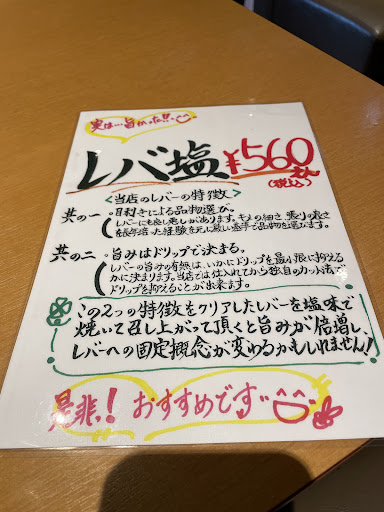 実は…旨かった!!
レバ塩 ¥560えん
(税込)
<当店のレバーの特徴>
其の一・目利きによる品物選び。
レバーにも良し悪しがあります。その細さ 張りの良さ
を長年培った経験を元に厳しい選手で品物を選びます。
其の二・旨みはドリップで決まる。
レバーの旨みの有無は、いかにドリップを最小限に抑える
かに決まります。当店では仕入れてから独自のカット法で
ドリップを抑えることが出来ます。
この2つの特徴をクリアしたレバーを塩味で
焼いて召し上がって頂くと旨みが倍増し、
レバーへの固定概念が変わるかもしれません!
是非! おすすめです